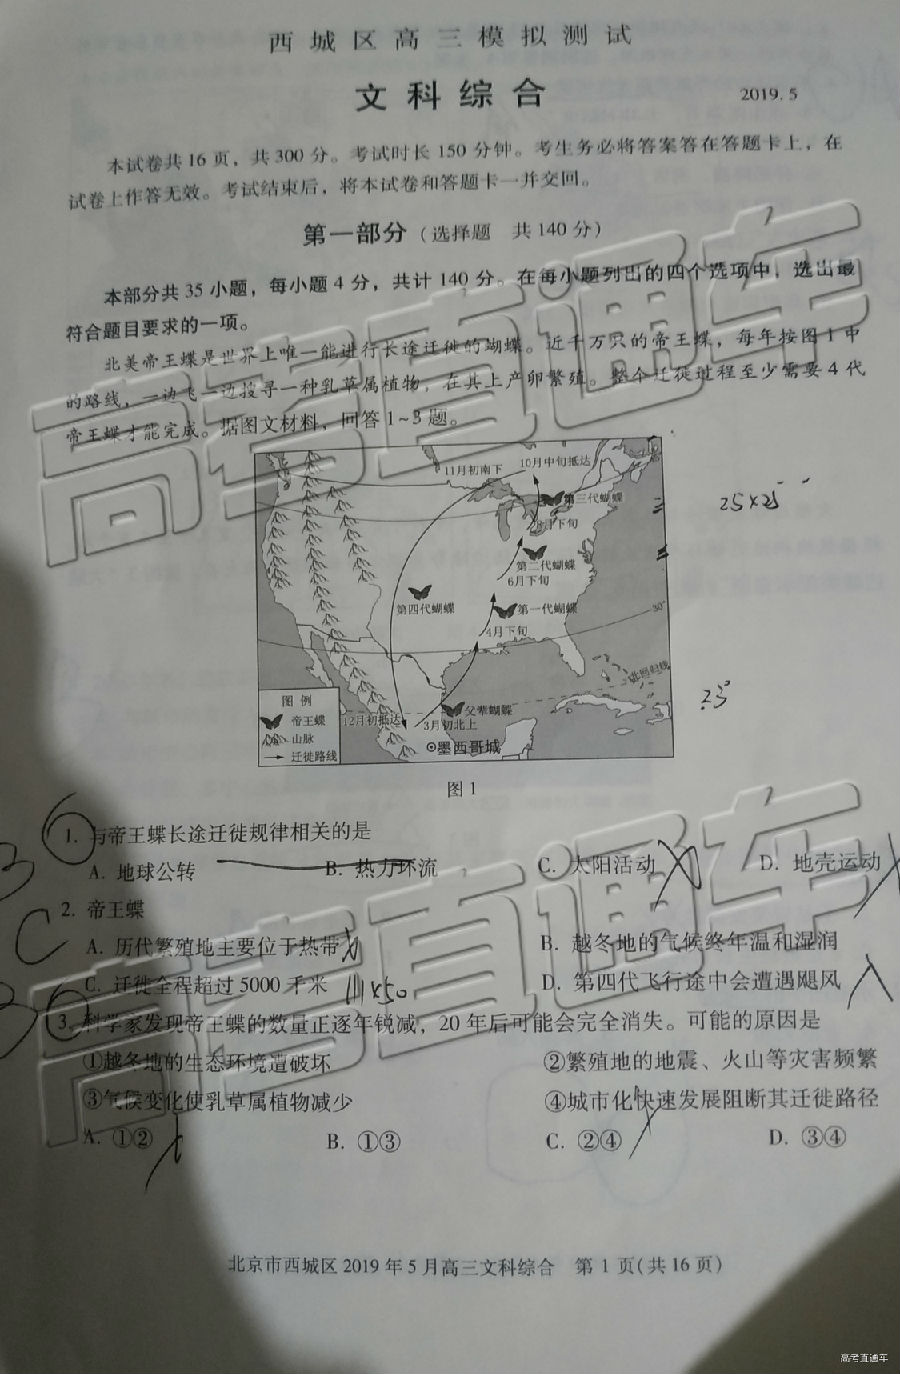 西城区高三模拟测试
文科综合
2019.5
本试卷共16页，共300分。考试时长150分钟。考生务必将答案答在答题卡上，在
试卷上作答无效。考试结束后，将本试卷和答题卡一并交回。
第一部分（选择题 共140分）
本部分共35小题，每小题4分，共计140分。在每小题列出的四个选项中，选出最
符合题目要求的一项。
北美帝王蝶是世界上唯一能进行长途迁徙的蝴蝶。近千万只的帝王蝶，每年按图1中
的路线，一边飞一边搜寻一种乳草属植物，在其上产卵繁殖。整个迁徙过程至少需要4代
帝王蝶才能完成。据图文材料，回答1~3题。
11月初南下
10月中旬抵达
第三代蝴蝶
月下旬
第二代蝴蝶
6月下旬
第四代蝴蝶
第一代蝴蝶
4月下旬
30°
北回归线
图例
帝王蝶
山脉
迁徙路线
12月初抵达
父辈蝴蝶
3月初北上
墨西哥城
25×25
图1
1. 与帝王蝶长途迁徙规律相关的是
A. 地球公转 B. 热力环流 C. 太阳活动 D. 地壳运动
C
2. 帝王蝶
A. 历代繁殖地主要位于热带 B. 越冬地的气候终年温和湿润
C. 迁徙全程超过5000千米 111×50 D. 第四代飞行途中会遭遇飓风
3. 科学家发现帝王蝶的数量正逐年锐减，20年后可能会完全消失。可能的原因是
①越冬地的生态环境遭破坏 ②繁殖地的地震、火山等灾害频繁
③气候变化使乳草属植物减少 ④城市化快速发展阻断其迁徙路径
A. ①② B. ①③ C. ②④ D. ③④
北京市西城区2019年5月高三文科综合 第1页(共16页)
高考直通车
高考直通车
高考直通车